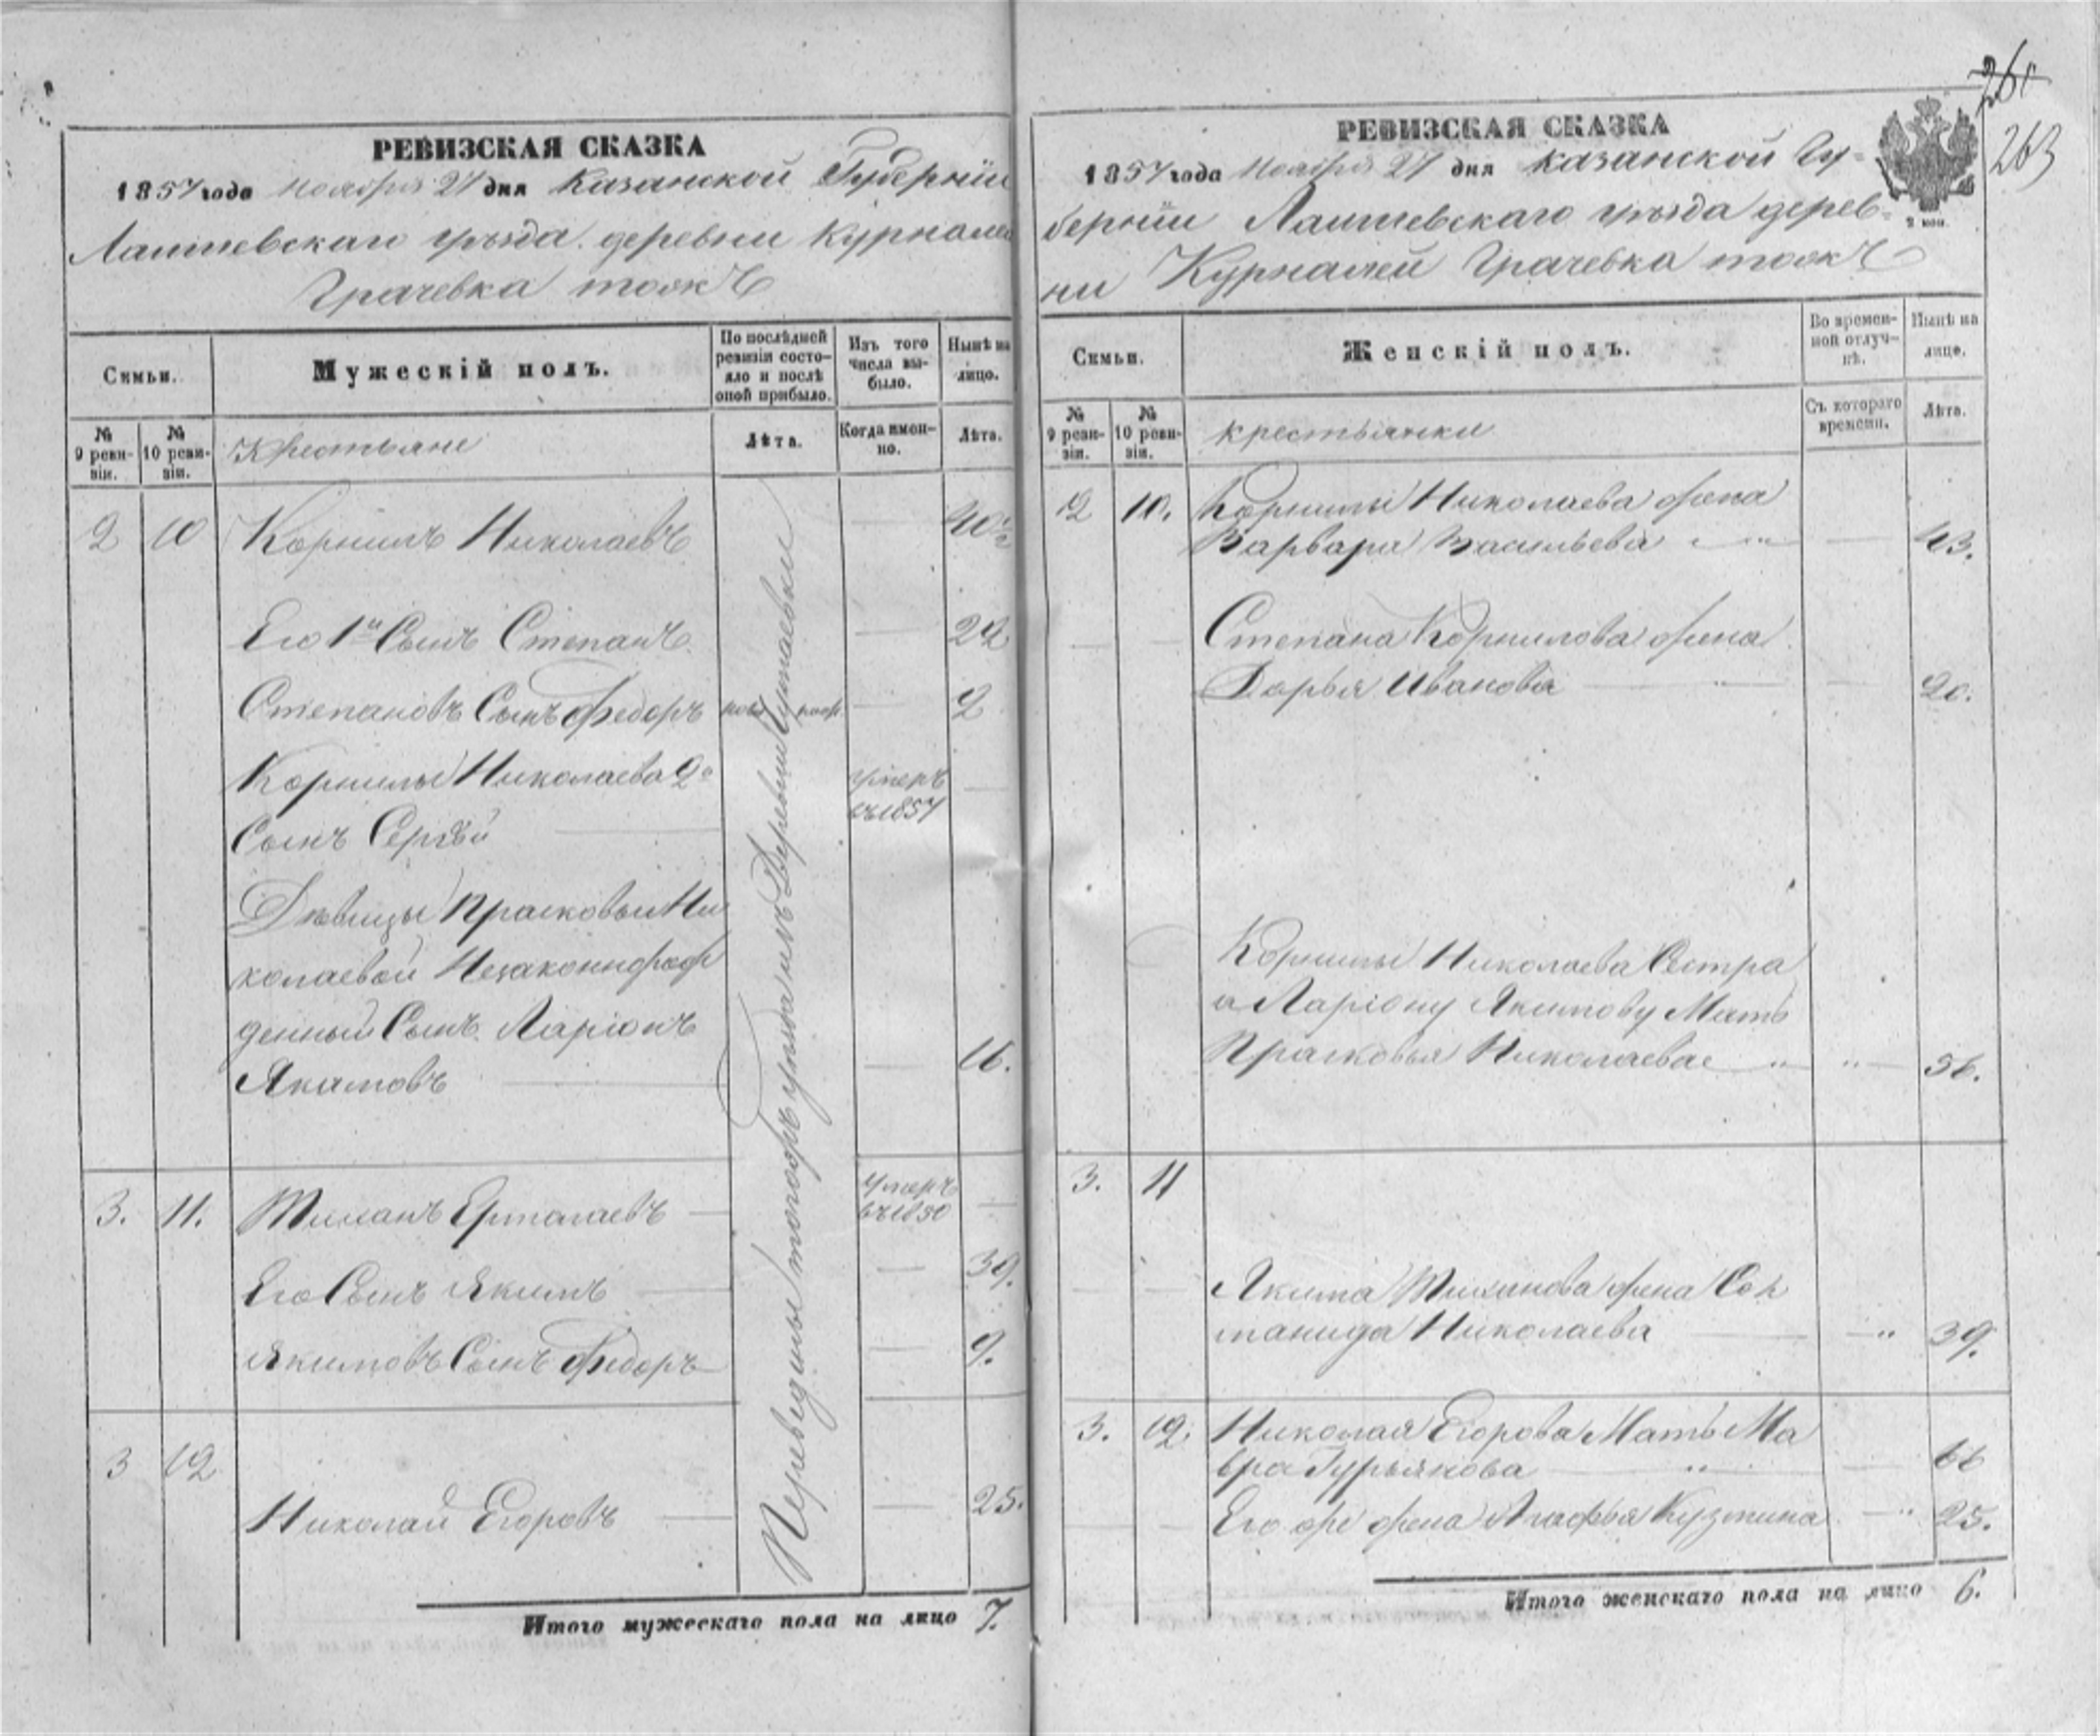 РЕВИЗСКАЯ СКАЗКА
1857 года Ноября 27 дня Казанской Губерніи
Лаишевскаго уѣзда деревни Курналей
Грачевка тожъ
Симьи.
Мужескій полъ.
По послѣдней ревизіи состояло и послѣ оной прибыло.
Изъ того числа выбыло.
Нынѣ на лицо.
№ 9 ревизіи.
№ 10 ревизіи.
Крестьяне
Лѣта.
Когда именно.
Лѣта.
2 10 Корнилъ Николаевъ — 40½
Его 1й Сынъ Степанъ — 22
Степановъ Сынъ Федоръ — 2
Корнилы Николаева 2й умеръ —
Сынъ Сергѣй въ 1857
Дѣвицы Прасковьи Ни
колаевой Незаконнорож
денный Сынъ Ларіонъ
Якимовъ — 16.
3. 11. Ермолаевъ — умеръ въ 1850 —
Его Сынъ Якимъ — 39.
Якимовъ Сынъ Федоръ — 9.
3 12 Николай Егоровъ — 25.
Переведены тогожъ уѣзда изъ Деревни
Итого мужескаго пола на лицо 7.
261
263
РЕВИЗСКАЯ СКАЗКА
1857 года Ноября 27 дня Казанской Гу-
берніи Лаишевскаго уѣзда дерев-
ни Курналей Грачевка тожъ
2 коп.
Симьи.
Женскій полъ.
Во временной отлучкѣ.
Нынѣ на лицо.
№ 9 ревизіи.
№ 10 ревизіи.
крестьянки
Съ котораго времени.
Лѣта.
2 10. Корнилы Николаева жена
Варвара Васильева — 43.
Степана Корнилова жена
Дарья Иванова — 20.
Корнилы Николаева Сестра
а Ларіону Якимову Мать
Прасковья Николаева — 36.
3. 11
Якима жена Со
Николаева — 39.
3. 12. Николая Егорова Мать Ма
вра Гурьянова — 66
Его же жена Агафья Кузмина — 25.
Итого женскаго пола на лицо 6.